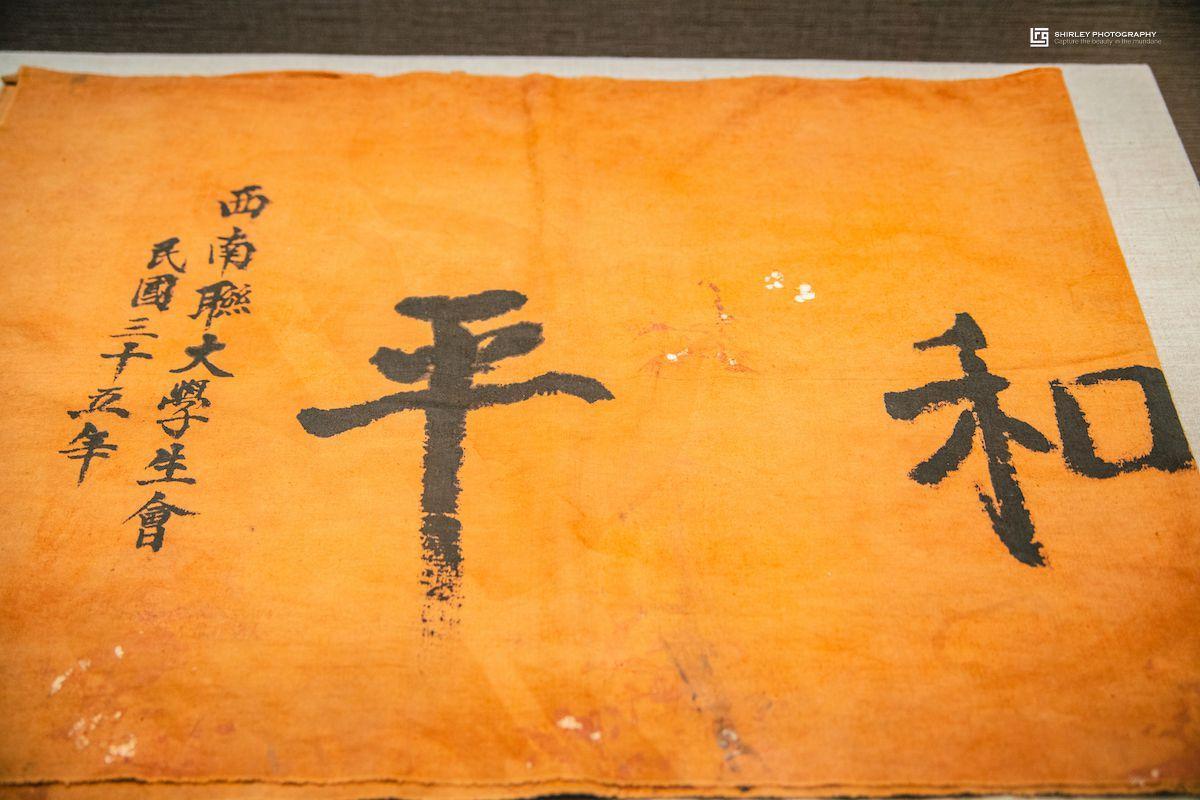 和平
西南聯大學生會
民國三十五年
SHIRLEY PHOTOGRAPHY
Capture the beauty in the mundane